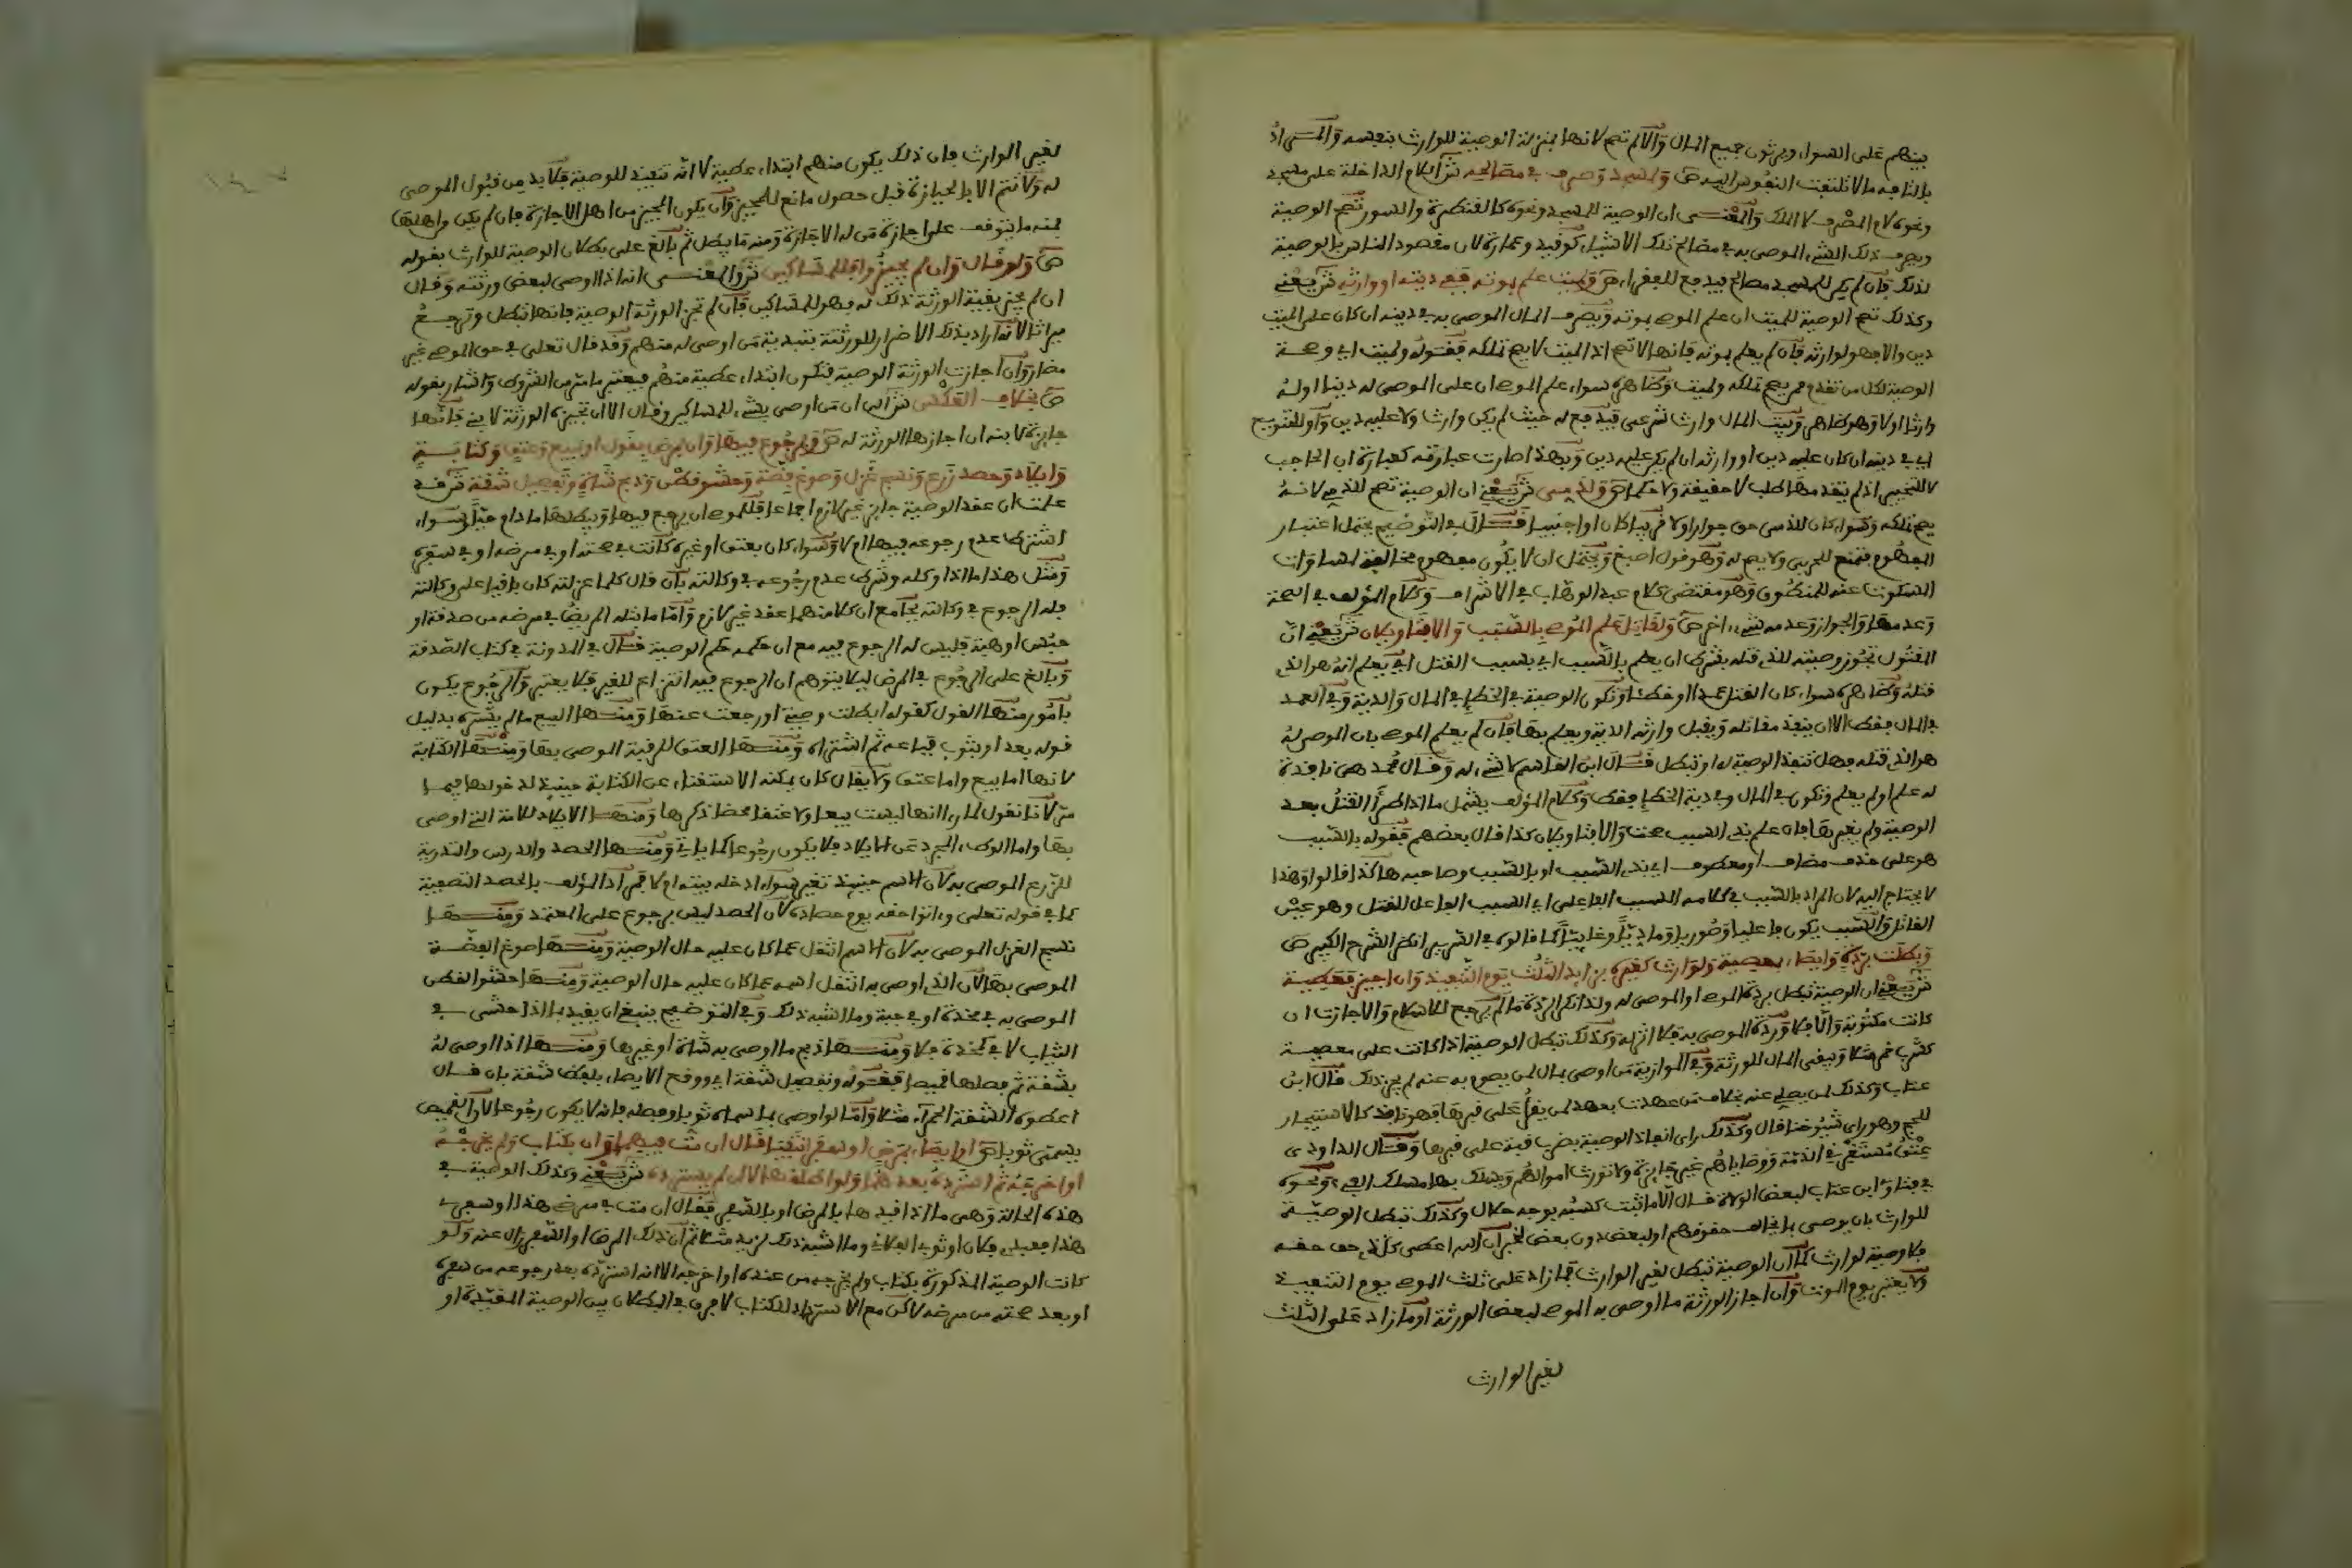 بينهم على السواء ويرثون جميع المال والا لم تصح لانها بمنزلة الوصية للوارث بنفسه
بالتافه مالا تلتفت النفوس اليه ص ولمسجد وصرف في مصالحه ش اللام الداخلة على مسجد
ونحوه لام المصرف لا الملك والمعنى ان الوصية للمسجد ونحوه كالقنطرة والسور تصح الوصية
ويصرف ذلك الشيء الموصى به في مصالح تلك الاشياء كوقيد وعمارة لان مقصود الناس بالوصية
لذلك فان لم يكن للمسجد مصالح فيدفع للفقراء ص ولميت علم بموته ففي دينه او وارثه ش يعني
وكذلك تصح الوصية للميت ان علم الموصي بموته ويصرف المال الموصى به في دينه ان كان على الميت
دين والا فهو لوارثه فان لم يعلم بموته فانها لا تصح اذ الميت لا يصح تملكه فقوله ولميت اي وصحة
الوصية لكل من تقدم ممن يصح تملكه ولميت وظاهره سواء علم الموصي ان على الموصى له دينا او له
وارثا او لا وهو ظاهر وبيت المال وارث شرعي فيدفع له حيث لم يكن وارث ولا عليه دين واو للتنويع
اي في دينه ان كان عليه دين او وارثه ان لم يكن عليه دين وبهذا صارت عبارته كعبارة ابن الحاجب
لا للتخيير اذ لم يتقدمها طلب لا حقيقة ولا حكما ص ولذمي ش يعني ان الوصية تصح للذمي لانه
يصح تملكه وسواء كان للذمي حق جوار او لا قريبا كان او اجنبيا قال في التوضيح يحتمل اعتبار
المفهوم فتمنع للحربي ولا يصح له وهو قول اصبغ ويحتمل ان لا يكون مفهوم مخالفة لمساوات
المسكوت عنه للمنطوق وهو مقتضى كلام عبد الوهاب في الاشراف وكلام المؤلف في الصحة
وعدمها والجواز وعدمه شيء اخر ص ولقاتل علم الموصي بالسبب والا فتاويلان ش يعني ان
المقتول تجوز وصيته للذي قتله بشرط ان يعلم بالسبب اي بسبب القتل اي يعلم انه هو الذي
قتله وظاهره سواء كان القتل عمدا او خطئا وتكون الوصية في الخطإ في المال والدية وفي العمد
في المال فقط الا ان ينفذ مقاتله ويقبل وارثه الدية ويعلم بها فان لم يعلم الموصي بان الموصى له
هو الذي قتله فهل تنفذ الوصية له او تبطل قال ابن القاسم لا شيء له وقال محمد هي نافذة
له علم او لم يعلم وتكون في المال وفي دية الخطإ فقط وكلام المؤلف يشمل ما اذا طرأ القتل بعد
الوصية ولم يغيرها فان علم بذي السبب صحت والا فتاويلان كذا قال بعضهم فقوله بالسبب
هو على حذف مضاف او معطوف اي بذي السبب او بالسبب وصاحبه هاكذا قالوا وهذا
لا يحتاج اليه لان المراد بالسبب في كلامه السبب الفاعلي اي السبب الفاعل للقتل وهو عين
القاتل والسبب يكون فاعليا وصوريا وماديا وغائيا كما قالوه في السرير انظر الشرح الكبير ص
وبطلت بردته وايصاء بمعصية ولوارث كغيره بزايد الثلث يوم التنفيذ وان اجيز فعطية
ش يعني ان الوصية تبطل بردة الموصي او الموصى له ولذا نكر الردة مالم يرجع للاسلام والا جازت ان
كانت مكتوبة والا فلا وردة الموصى به فلا اثر له وكذلك تبطل الوصية اذا كانت على معصية
كشرب خمر مثلا ويبقى المال للورثة وفي الموازية من اوصى بمال لمن يصوم به عنه لم يجز ذلك قال ابن
عتاب وكذلك لمن يصلي عنه بخلاف من عهدت بعهد لمن يقرأ على قبرها فهو نافذ كالاستيجار
للحج وهو راي شيوخنا قال وكذلك راى انفاذ الوصية بضرب قبة على قبرها وقال الداودي
عتق مستغرق في الذمة ووصاياهم غير جايزة ولا تورث اموالهم ويسلك بها مسلك الفيء ونحوه
في فتاوى ابن عتاب لبعض الولاة قال الا ما ثبت كسبه بوجه حلال وكذلك تبطل الوصية
للوارث بان يوصي بما يخالف حقوقهم او لبعض دون بعض لخبر ان الله اعطى كل ذي حق حقه
فلا وصية لوارث كما ان الوصية تبطل لغير الوارث بما زاد على ثلث الموصي يوم التنفيذ
ولا يعتبر يوم الموت وان اجاز الورثة ما اوصى به الموصي لبعض الورثة او ما زاد على الثلث
لغير الوارث
لغير الوارث فان ذلك يكون منهم ابتداء عطية لا انه تنفيذ للوصية فلا بد من قبول الموصى
له ولا تتم الا بالحيازة قبل حصول مانع للمجيز وان يكون المجيز من اهل الاجازة فان لم يكن من اهلها
فمنه ما يتوقف على اجازة من له الاجازة ومنه ما يبطل ثم بالغ على بطلان الوصية للوارث بقوله
ص ولو قال وان لم يجيزوا فللمساكين ش والمعنى انه اذا اوصى لبعض ورثته وقال
ان لم يجز بقية الورثة ذلك له فهو للمساكين فان لم تجز الورثة الوصية فانها تبطل وترجع
ميراثا لانه اراد بذلك الاضرار للورثة بتبدية من اوصى له منهم وقد قال تعلى في حق الموصي غير
مضار وان اجازت الورثة الوصية فتكون ابتداء عطية منهم فيعتبر ما مر من الشروط واشار بقوله
ص بخلاف العكس ش الى ان من اوصى بشيء للمساكين وقال الا ان تجيزه الورثة لابني فانها
جايزة لابنه ان اجازها الورثة له ص وبرجوع فيها وان بمرض بقول او بيع وعتق وكتابة
وايلاد وحصد زرع ونسج غزل وصوغ فضة وحشو قطن وذبح شاة وتفصيل شقة ش قد
علمت ان عقد الوصية جايز غير لازم اجماعا فللموصي ان يرجع فيها ويبطلها ما دام حيا سواء
اشترط عدم رجوعه فيها ام لا وسواء كان بعتق او غيره كانت في صحته او في مرضه او في سفره
ومثل هذا ما اذا وكله وشرط عدم رجوعه في وكالته بان قال كلما عزلته كان باقيا على وكالته
فله الرجوع في وكالته بجامع ان كلا منهما عقد غير لازم واما ما بتله المريض في مرضه من صدقة او
حبس او هبة فليس له الرجوع فيه مع ان حكمه حكم الوصية قال في المدونة في كتاب الصدقة
وبالغ على الرجوع في المرض ليلا يتوهم ان الرجوع فيه انتزاع للغير فلا يعتبر والرجوع يكون
بامور منها القول كقوله ابطلت وصية او رجعت عنها ومنها البيع مالم يشتره بدليل
قوله بعد او بثوب فباعه ثم اشتراه ومنها العتق للرقبة الموصى بها ومنها الكتابة
لانها اما بيع واما عتق ولا يقال كان يمكنه الاستغناء عن الكتابة حينيذ لدخولها فيما
مر لانا نقول لما رءا انها ليست بيعا ولا عتقا محضا ذكرها ومنها الايلاد للامة التي اوصى
بها واما الوطء المجرد عن الايلاد فلا يكون رجوعا كما ياتي ومنها الحصد والدرس والتذرية
للزرع الموصى به لان الاسم حينيذ تغير سواء ادخله بيته ام لا فمراد المؤلف بالحصد التصفية
كما في قوله تعلى وءاتوا حقه يوم حصاده لان الحصد ليس برجوع على المعتمد ومنها
نسج الغزل الموصى به لان الاسم انتقل عما كان عليه حال الوصية ومنها صوغ الفضة
الموصى بها لان الذي اوصى به انتقل اسمه عما كان عليه حال الوصية ومنها حشو القطن
الموصى به في مخدة او في جبة وما اشبه ذلك وفي التوضيح ينبغي ان يقيد بما اذا حشى في
الثياب لا في كمخدة فلا ومنها ذبح ما اوصى به شاة او غيرها ومنها اذا اوصى له
بشقة ثم فصلها قميصا فقوله وتفصيل شقة اي ووقع الايصاء بلفظ شقة بان قال
اعطوه الشقة الحمراء مثلا واما لو اوصى بما سماه ثوبا وفصله فانه لا يكون رجوعا لان القميص
يسمى ثوبا ص وايصاء بمرض او سفر انتفيا قال ان مت فيهما وان بكتاب ولم يخرجه
او اخرجه ثم استرده بعدهما ولو اطلقها لا ان لم يسترده ش يعني وكذلك الوصية في
هذه الحالة وهي ما اذا قيدها بالمرض او بالسفر فقال ان مت في مرضي هذا او سفري
هذا فعبدي فلان او ثوبي الفلاني وما اشبه ذلك لزيد مثلا ثم ان ذلك المرض او السفر زال عنه ولو
كانت الوصية المذكورة بكتاب ولم يخرجه من عنده او اخرجه الا انه استرده بعد رجوعه من سفره
او بعد صحته من مرضه لاكن مع الاسترداد للكتاب لا فرق في البطلان بين الوصية المقيدة او